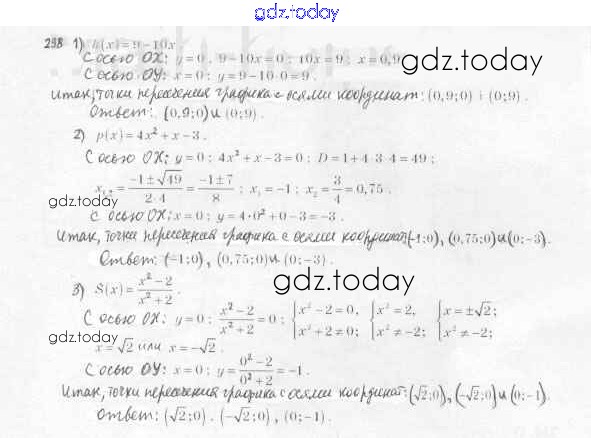 gdz.today
298 1) h(x)=9−10x
С осью OX: y=0, 9−10x=0; 10x=9; x=0,9
gdz.today
С осью OY: x=0; y=9−10·0=9.
Итак, точки пересечения графика с осями координат: (0,9;0) и (0;9).
Ответ: (0,9;0) и (0;9).
2) p(x)=4x²+x−3.
С осью OX: y=0; 4x²+x−3=0; D=1+4·3·4=49;
gdz.today
x₁,₂=(−1±√49)/(2·4)=(−1±7)/8; x₁=−1; x₂=3/4=0,75.
С осью OX: x=0; y=4·0²+0−3=−3.
Итак, точки пересечения графика с осями координат: (−1;0), (0,75;0) и (0;−3).
Ответ: (−1;0), (0,75;0) и (0;−3).
gdz.today
3) S(x)=(x²−2)/(x²+2).
С осью OX: y=0; (x²−2)/(x²+2)=0; {x²−2=0, x²+2≠0; {x²=2, x²≠−2; {x=±√2; x²≠−2;
x=√2 или x=−√2.
gdz.today
С осью OY: x=0; y=(0²−2)/(0²+2)=−1.
Итак, точки пересечения графика с осями координат: (√2;0), (−√2;0) и (0;−1).
Ответ: (√2;0). (−√2;0), (0;−1).
gdz.today